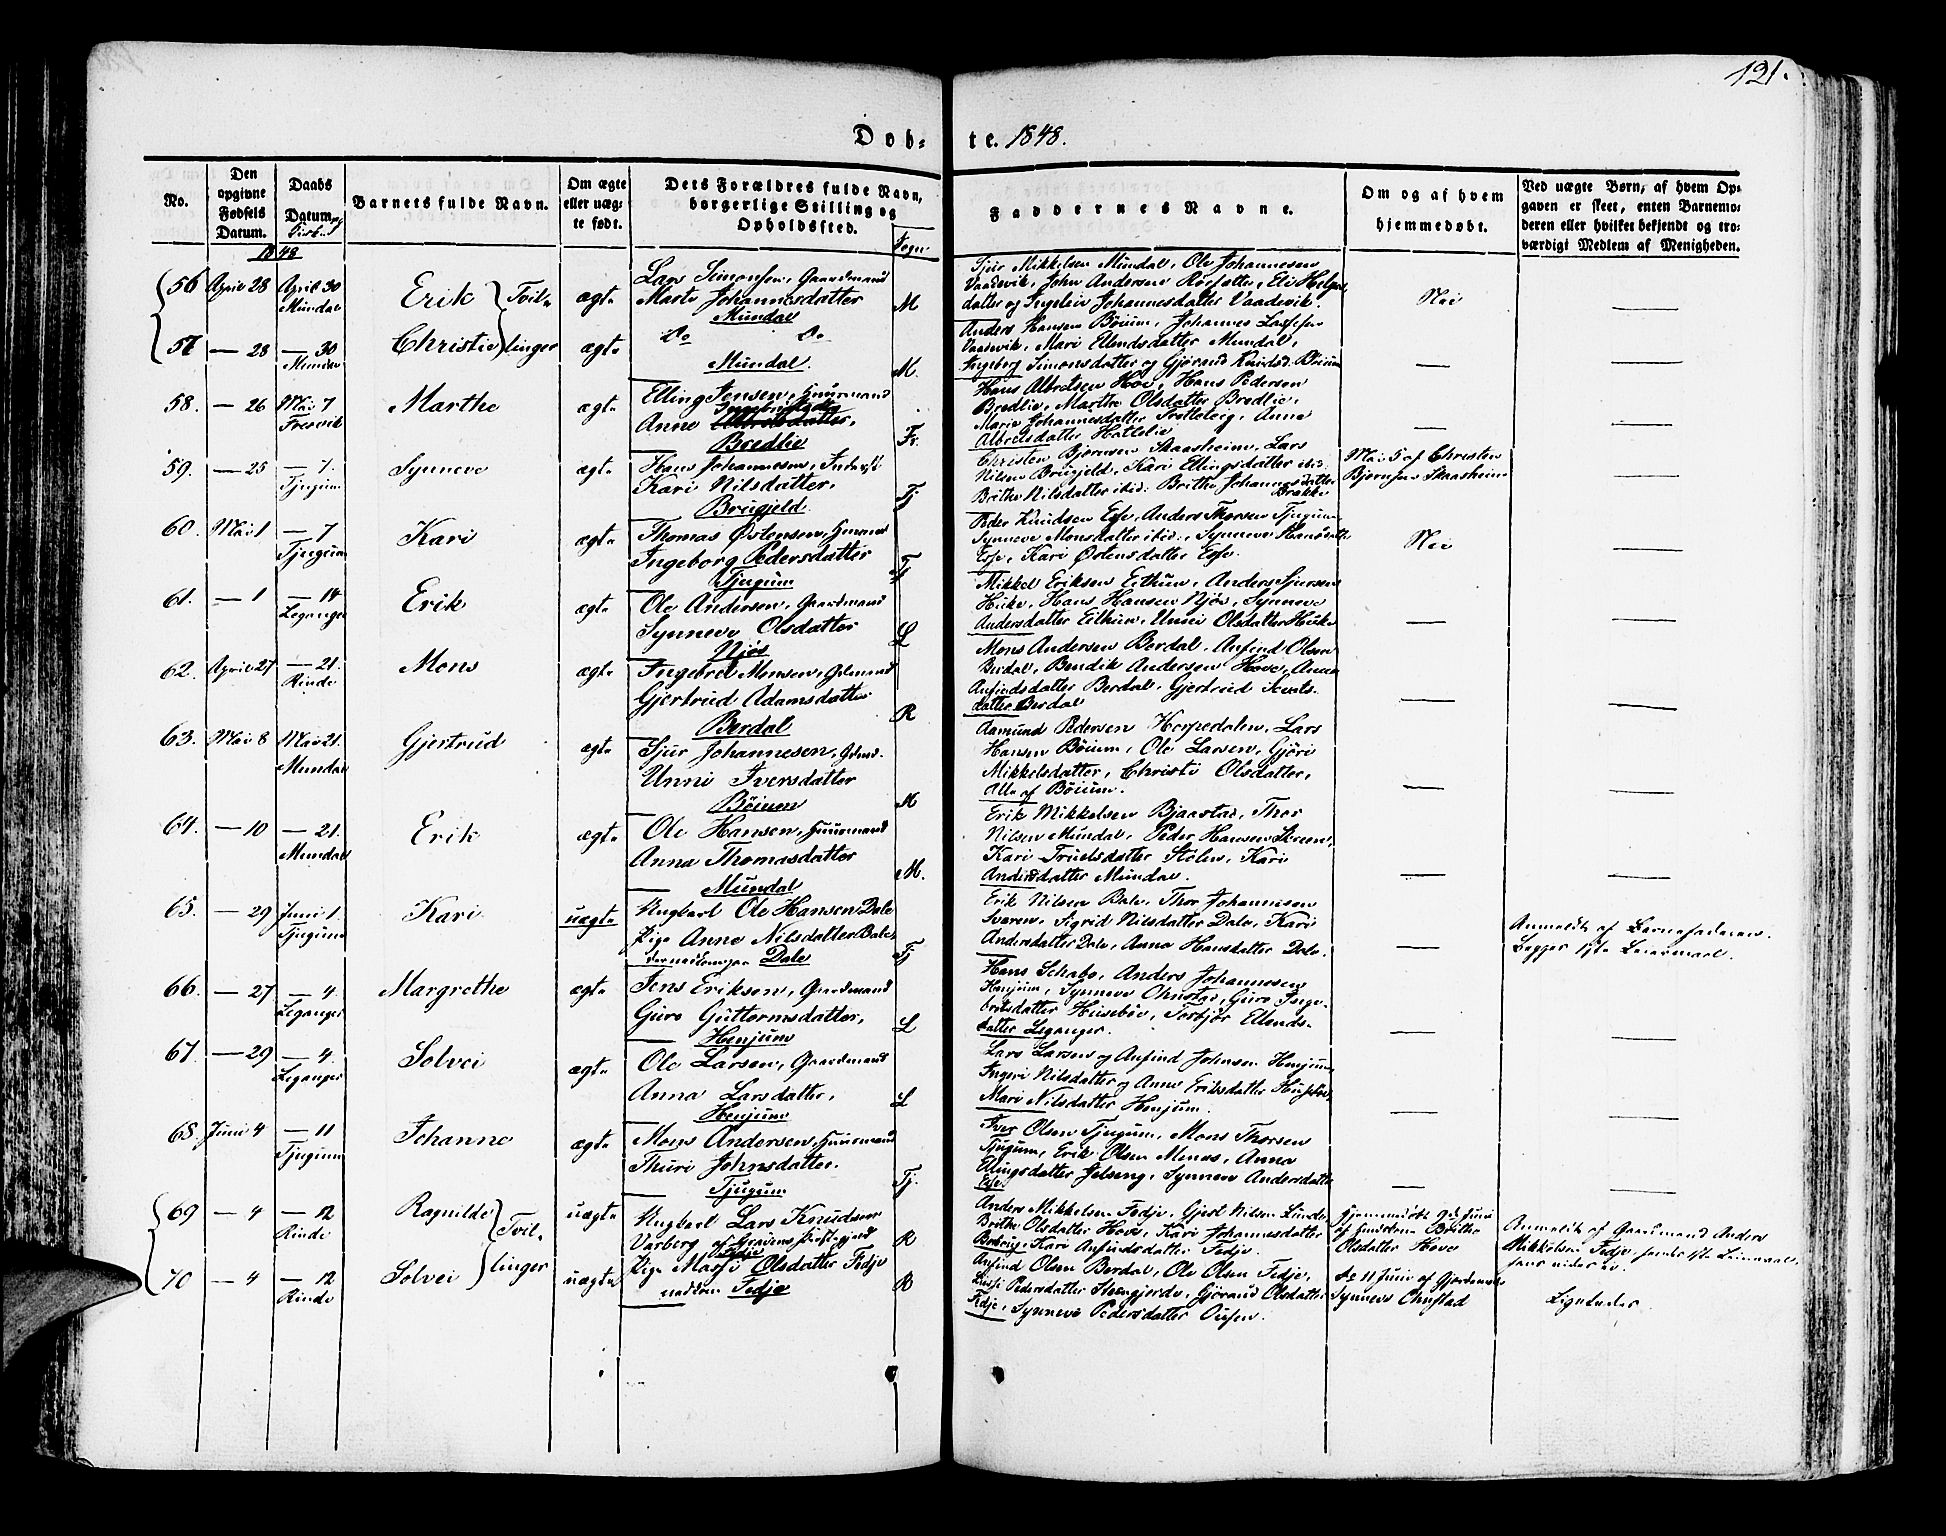 121.
Døb-
te. 1848.
No.
Den
opgivne
Fødsels
Datum.
Daabs
Datum og
Barnets fulde Navn.
Om ægte
eller uæg-
te født.
Dets Forældres fulde Navn,
borgerlige Stilling og
Opholdssted.
Sogn
Faddernes Navne.
Om og af hvem
hjemmedøbt.
Ved uægte Børn, af hvem Op-
gaven er skeet, enten Barnemo-
deren eller hvilket bekjendt og tro-
værdigt Medlem af Menigheden.
1848
56 April 28 April 30 Mundal Erik Tvil- ægte
Lars Simonsen, Gaardmand
Marte Johannesdatter
Mundal M
Sjur Mikkelsen Mundal, Ole Johannesen
Vaadevik, John Andersen Rørsætter, Eli Helges
datter og Ingeleiv Johannesdatter Vaadevik.
Nei —
57 — 28 — 30 Mundal Christie linger ægte
Do Do
Mundal. M.
Anders Hansen Bøium, Johannes Lassesen
Vaadevik, Mari Ellendsdatter Mundal,
Ingeborg Simonsdatter og Gjørand Knudsd. Bøium
— —
58. — 26 Mai 7 Fresvik Marthe ægte
Elling Jensen, Huusmand
Anne
Bredlie Fr.
Hans Albretsen Hove, Hans Pedersen
Bredlie, Marthe Olsdatter Bredlie,
Marie Johannesdatter, Anna
Albretsdatter Hattelie
— —
59. — 25 — 7. Tjugum Synneve ægte
Hans Johannesen, Inderst
Kari Nilsdatter,
Brugjeld Tj
Christen Bjørnsen Skaasheim, Lars
Nilsen Brugjeld, Kari Ellingsdatter ibid.
Brithe Nilsdatter ibid: Brithe Johannesdatter
Brække
Mai 5 af Christen
Bjørnsen Skaasheim
—
60. Mai 1 — 7 Tjugum Kari ægte
Thomas Østensen, Huusmd
Ingeborg Pedersdatter
Tjugum Tj
Peder Knudsen Esse, Anders Thorsen Tjugum,
Synneve Monsdatter ibid., Synneve Hansdatter
Esse, Kari Østensdatter Esse.
Nei —
61. — 1 — 14 Leganger Erik ægte
Ole Andersen, Gaardmand
Synneve Olsdatter
Njøs L
Mikkel Eriksen Eithun, Anders Sjursen
Huke, Hans Hansen Njøs, Synneve
Andersdatter Eithun, Unni Olsdatter Huke
— —
62. April 27 — 21. Rinde Mons ægte
Ingebret Monsen, Gdmand
Gjertrud Adamsdatter
Berdal R
Mons Andersen Berdal, Anfind Olsen
Berdal, Bendik Andersen Hove, Anna
Anfindsdatter Berdal, Gjertrud Siverts-
datter Berdal
— —
63. Mai 8 Mai 21. Mundal Gjertrud ægte
Sjur Johannesen, Gdmd.
Unni Iversdatter
Bøium M
Aamund Pedersen Horpedalen, Lars
Hansen Bøium, Ole Larsen, Gjøri
Mikkelsdatter, Christi Olsdatter,
Alle af Bøium.
— —
64. — 10 — 21. Mundal Erik ægte
Ole Hansen, Huusmand
Anna Thomasdatter
Mundal M.
Erik Mikkelsen Bjaastad, Thor
Nilsen Mundal, Peder Hansen,
Kari Truelsdatter Stølen, Kari
Andersdatter Mundal.
— —
65. — 29 Juni 1. Tjugum Kari uægte
Ungkarl Ole Hansen Dale
Pige Anne Nilsdatter Bale,
Dale Tj
Erik Nilsen Bale, Thor Johannesen
Sværen, Sigrid Nilsdatter Dale, Kari
Andersdatter Dale, Anna Hansdatter Dale.
—
Anmeldt af Barnefaderen.
Begges 1ste Leiermaal.
66. — 27 — 4. Leganger Margrethe ægte
Jens Eriksen, Gaardmand
Guro Guttormsdatter,
Henjum L
Hans Schabo, Anders Johannesen
Henjum, Synneve Ohnstad, Guro Inge-
britsdatter Husebøe, Torbjør Ellends-
datter Leganger.
— —
67. — 29 — 4. Leganger Solvei ægte
Ole Larsen, Gaardmand
Anna Larsdatter,
Henjum L
Lars Larsen og Anfind Johnsen Henjum
Ingeri Nilsdatter og Anne Eriksdatter Husebøe
Mari Nilsdatter Henjum.
— —
68. Juni 4 — 11 Tjugum Johanne ægte
Mons Andersen, Huusmand
Thuri Johnsdatter.
Tjugum Tj.
Iver Olsen Tjugum, Mons Thorsen
Tjugum, Erik Olsen Menes, Anna
Ellingsdatter Jelseng, Synneve Andersdatter
Esse.
— —
69 — 4 — 12 Rinde Ragnilde Tvil- uægte
Ungkarl Lars Knudsen
Varberg af Gravens Præstegjeld
R
Anders Mikkelsen Fedje, Gjert Nilsen Linde
Brithe Olsdatter Hove, Kari Johannesdatter
Kari Anfindsdatter Fedje.
Hjemmedøbt 9de Juni
af Brithe
Olsdatter Hove
Anmeldt af Gaardmand Anders
Mikkelsen Fedje,
70 — 4 — 12 Rinde Solvei linger uægte
Pige Marji Olsdatter Fedje
Fedje R
Anfind Olsen Berdal, Ole Olsen Fedje,
Pedersdatter Steengjerde, Gjørand Olsdatter
Fedje, Synneve Pedersdatter
Do 11 Juni af
Synneve Ohnstad
Ligeledes